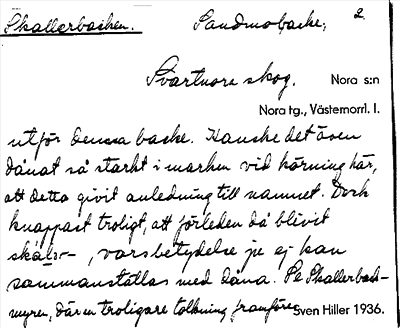 Skallerbacken. Sandmobacke, 2.
Svartnora skog. Nora s:n
Nora tg., Västernorrl. l.
utför denna backe. Kanske det även
dånat så starkt i marken vid körning här,
att detta givit anledning till namnet. Dock
knappast troligt, att förleden då blivit
skål-, vars betydelse ju ej kan
sammanställas med dåna. Se Skallerback-
myren, där en troligare tolkning framföres.
Sven Hiller 1936.